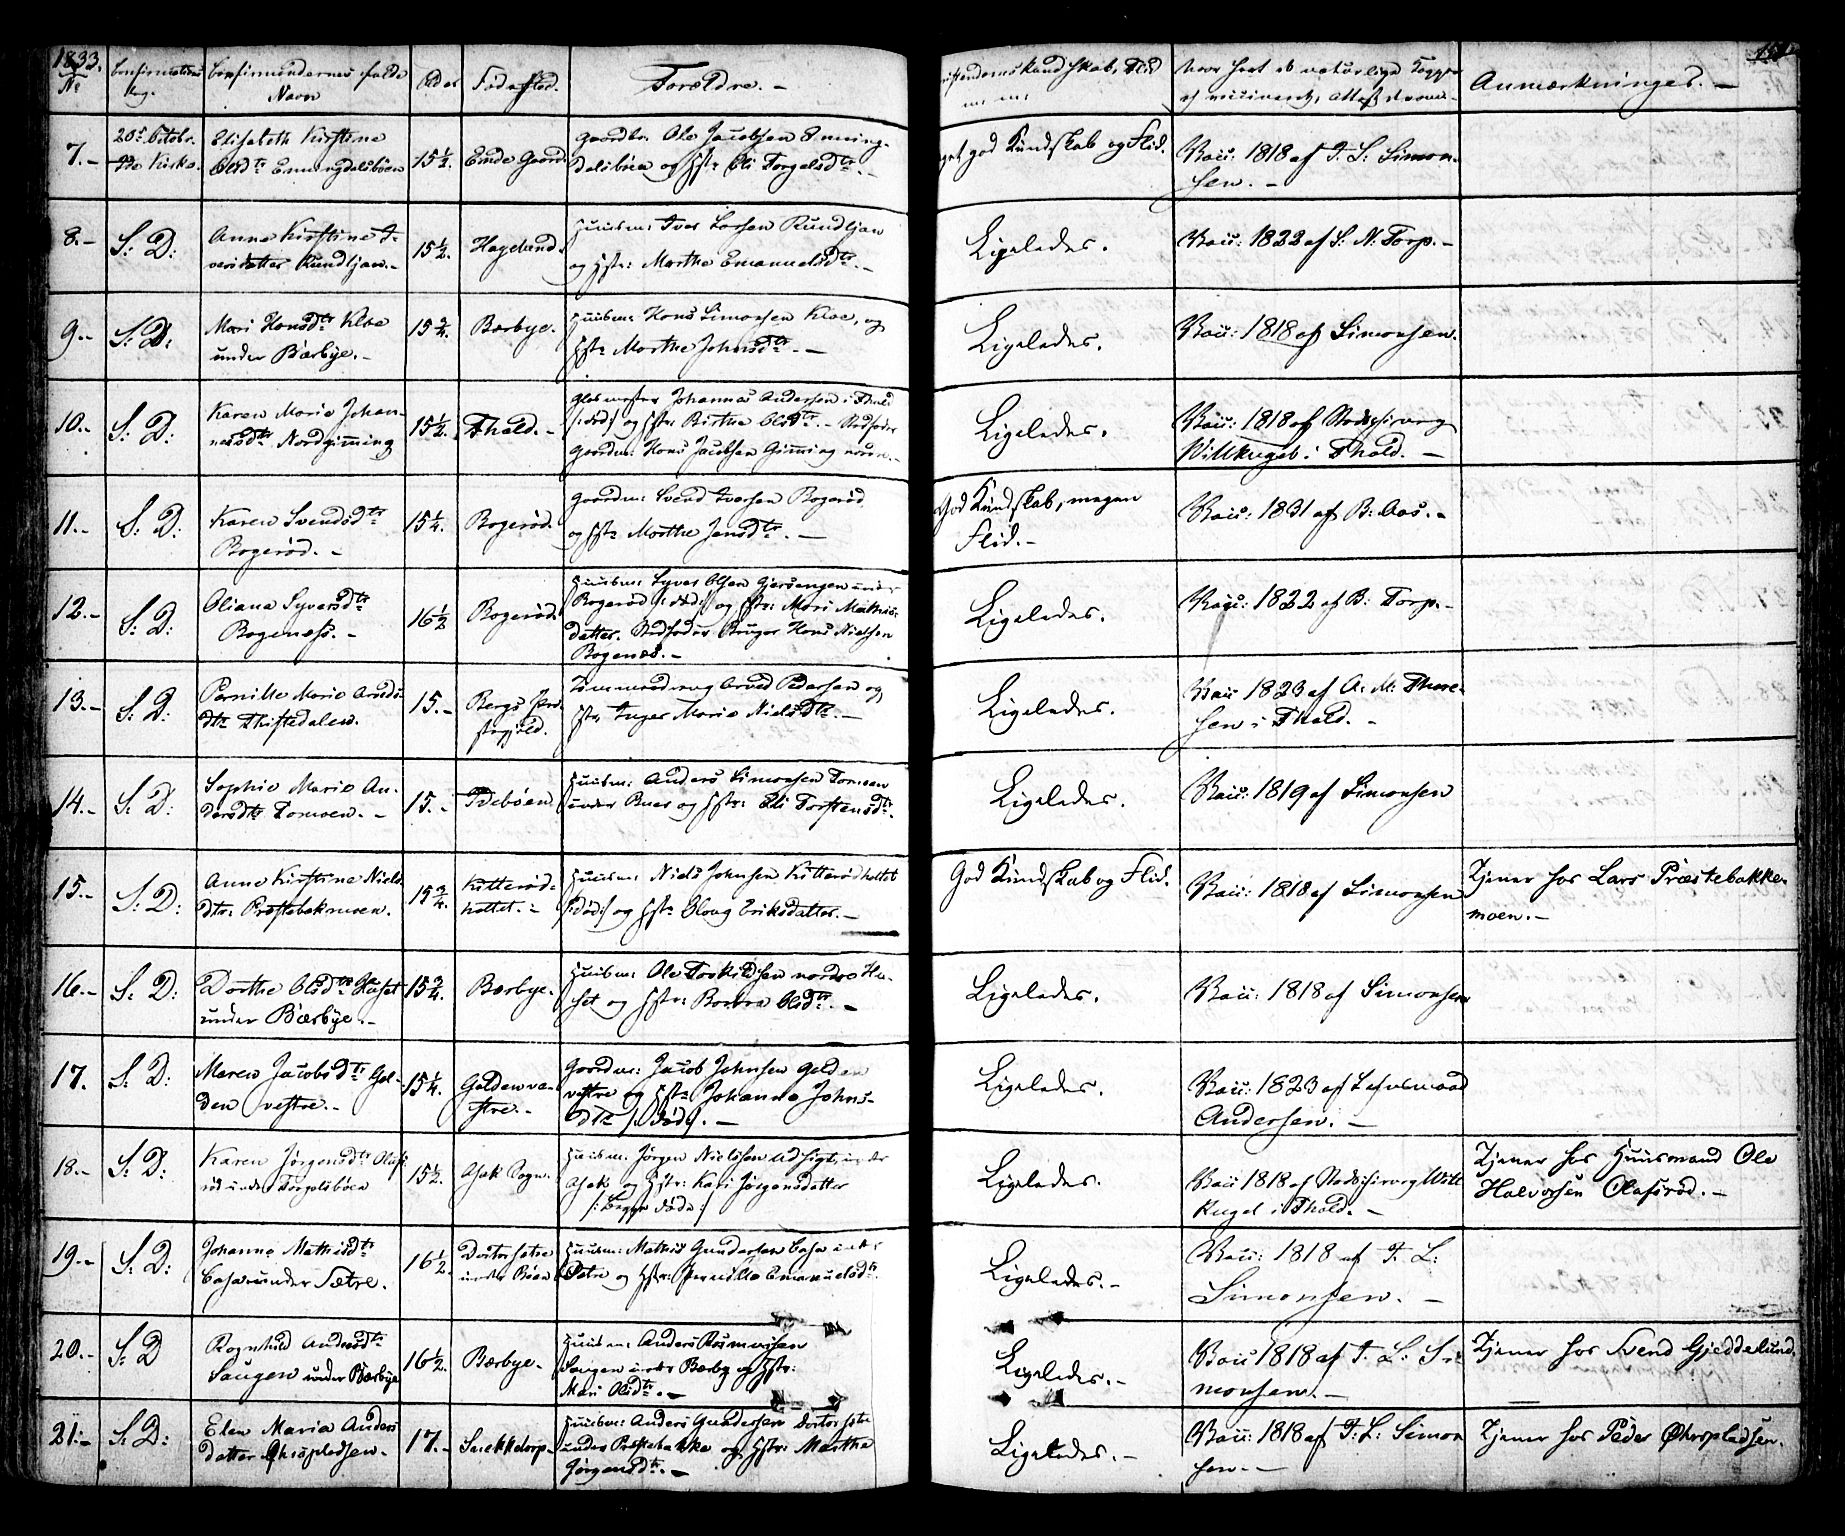 1833.
No
Confirmations
Dag.
Confirmandernes fulde
Navn
Alder
Fødested.
Forældre. -
Christendomskundskab, Flid
Hvor først de naturlige Kopper
ere vaccinerede, Attest derom -
Anmærkninger. -
7.-
20de Octobr.
Ide Kirke.
Elisabeth Kirstine
Olsdtr Enningdalsbøen
15 1/2.
Ende Gaard
Gaardbr. Ole Jacobsen Enning-
dalsbøen og Hstr: Eli Torgelsdtr. -
meget god Kundskab og Flid.
Vac: 1818 af T. L: Simon-
sen. -
8.-
S: D:
Anne Kirstine I-
versdatter Rundtjan. -
15 1/2.
Hogelund.
Huusm: Iver Larsen Rundtjan
og Hstr: Marthe Emanuelsdtr. -
Ligeledes.
Vac: 1822 af S. N. Torp. -
9.-
S: D:
Mari Hansdtr Kloe
under Bærbye. -
15 3/4.
Bærbye.
Huusm: Hans Simonsen Kloe, og
Hstr Marthe Johnsdtr. -
Ligeledes.
Vac: 1818 af Simonsen.
10.-
S: D:
Karen Marie Johan-
nesdtr Nordgimming
15 1/2.
Fhald. -
Glasmester Johannes Andersen i Fhald
/:død:/ og Hstr: Birthe Olsdtr. - Stedfader
Gaardm: Hans Jacobsen Gimming nordre. -
Ligeledes.
Vac: 1818 af Stadschirurg
Wittkugel i Fhald. -
11.-
S: D:
Karen Svendsdtr
Bogerød. -
15 1/4.
Bogerød.
Gaardm: Svend Iversen Bogerød
og Hstr Marthe Jensdtr. -
God Kundskab, megen
Flid. -
Vac: 1831 af B: Aas. -
12.-
S: D:
Oliana Syversdtr
Bogenæss. -
16 1/2
Bogerød.
Huusm: Syver Olsen Gjersengen under
Bogerød /:død:/ og Hstr: Mari Mathis-
datter. Stedfader Bruger Hans Nielsen
Bogenæs. -
Ligeledes.
Vac: 1822 af B: Torp. -
13.-
S: D:
Pernille Marie Arveds-
dtr Thistedalen.
15.-
Bergs Præ-
stegjeld.
Tømmerdreng Arved Pedersen og
Hstr, Inger Marie Nielsdtr. -
Ligeledes.
Vac 1823 af A. M. Thue-
sen i Fhald. -
14.-
S: D:
Sophie Marie An-
dersdtr Tomoen. -
15.-
Idebøen
Huusm: Anders Simonsen Tomoen
under Buer og Hstr: Eli Torstensdtr.
Ligeledes.
Vac: 1819 af Simonsen
15.-
S: D:
Anne Kirstine Niels-
dtr: Prestebakmoen.
15 3/4.
Kitterød-
holtet. -
Huusm: Niels Johnsen Kitterødholtet
/:død:/ og Hstr Oloug Eriksdatter. -
God Kundskab og Flid.
Vac: 1818 af Simonsen
Tjener hos Lars Præstebakke-
moen. -
16.-
S: D:
Dorthe Olsdtr Huset
under Bærbye. -
15 3/4.
Bærbye.
Huusm: Ole Torkildsen nordre Hu-
set og Hstr: Barbra Olsdtr. -
Ligeledes.
Vac: 1818 af Simonsen
17.
S: D:
Maren Jacobsdtr Gol-
den vestre. -
15 1/4.
Golden ve-
stre. -
Gaardm: Jacob Johnsen Golden
vestre og Hstr Johanne Johns-
dtr /:død:/. -
Ligeledes.
Vac: 1823 af Lehnsmand
Andersen. -
18.-
S: D:
Karen Jørgensdtr Olafs-
rød under Torpelsbøen
15 1/2.
Asak Sogn.
Huusm: Jørgen Nielsen Udsigt, under
Asak og Hstr: Kari Jørgensdatter
/:Begge døde:/
Ligeledes.
Vac 1818 af Stadschirurg Witt
Kugel i Fhald. -
Tjener hos Huusmand Ole
Halvorsen Olafsrød. -
19.-
S: D:
Johanne Mathisdtr
Casa under Sætre.
16 1/2.
Dortesetre
under Bøen
Huusm: Mathis Gundersen Casa under
Setre og Hstr: Pernille Emanuelsdtr.
Ligeledes. -
Vac: 1818 af T. L:
Simonsen. -
20.-
S: D
Rognhild Andersdtr
Saugen under Bærbye
16 1/2.
Bærbye.
Huusm: Anders Rasmussen
Saugen under Bærby og Hstr:
Mari Olsdtr. -
Ligeledes. -
Vac 1818 af T. L: Si-
monsen. -
Tjener hos Svend Gjeddelund.
21.-
S: D:
Elen Maria Anders
datter Ørspladsen.
17.-
Snekketorp.
Huusm: Anders Gundersen Dortesetre
under Prestebakke og Hstr: Marthe
Jørgensdtr. -
Ligeledes. -
Vac: 1818 af T: L: Simon
sen. -
Tjener hos Peder Ørspladsen.